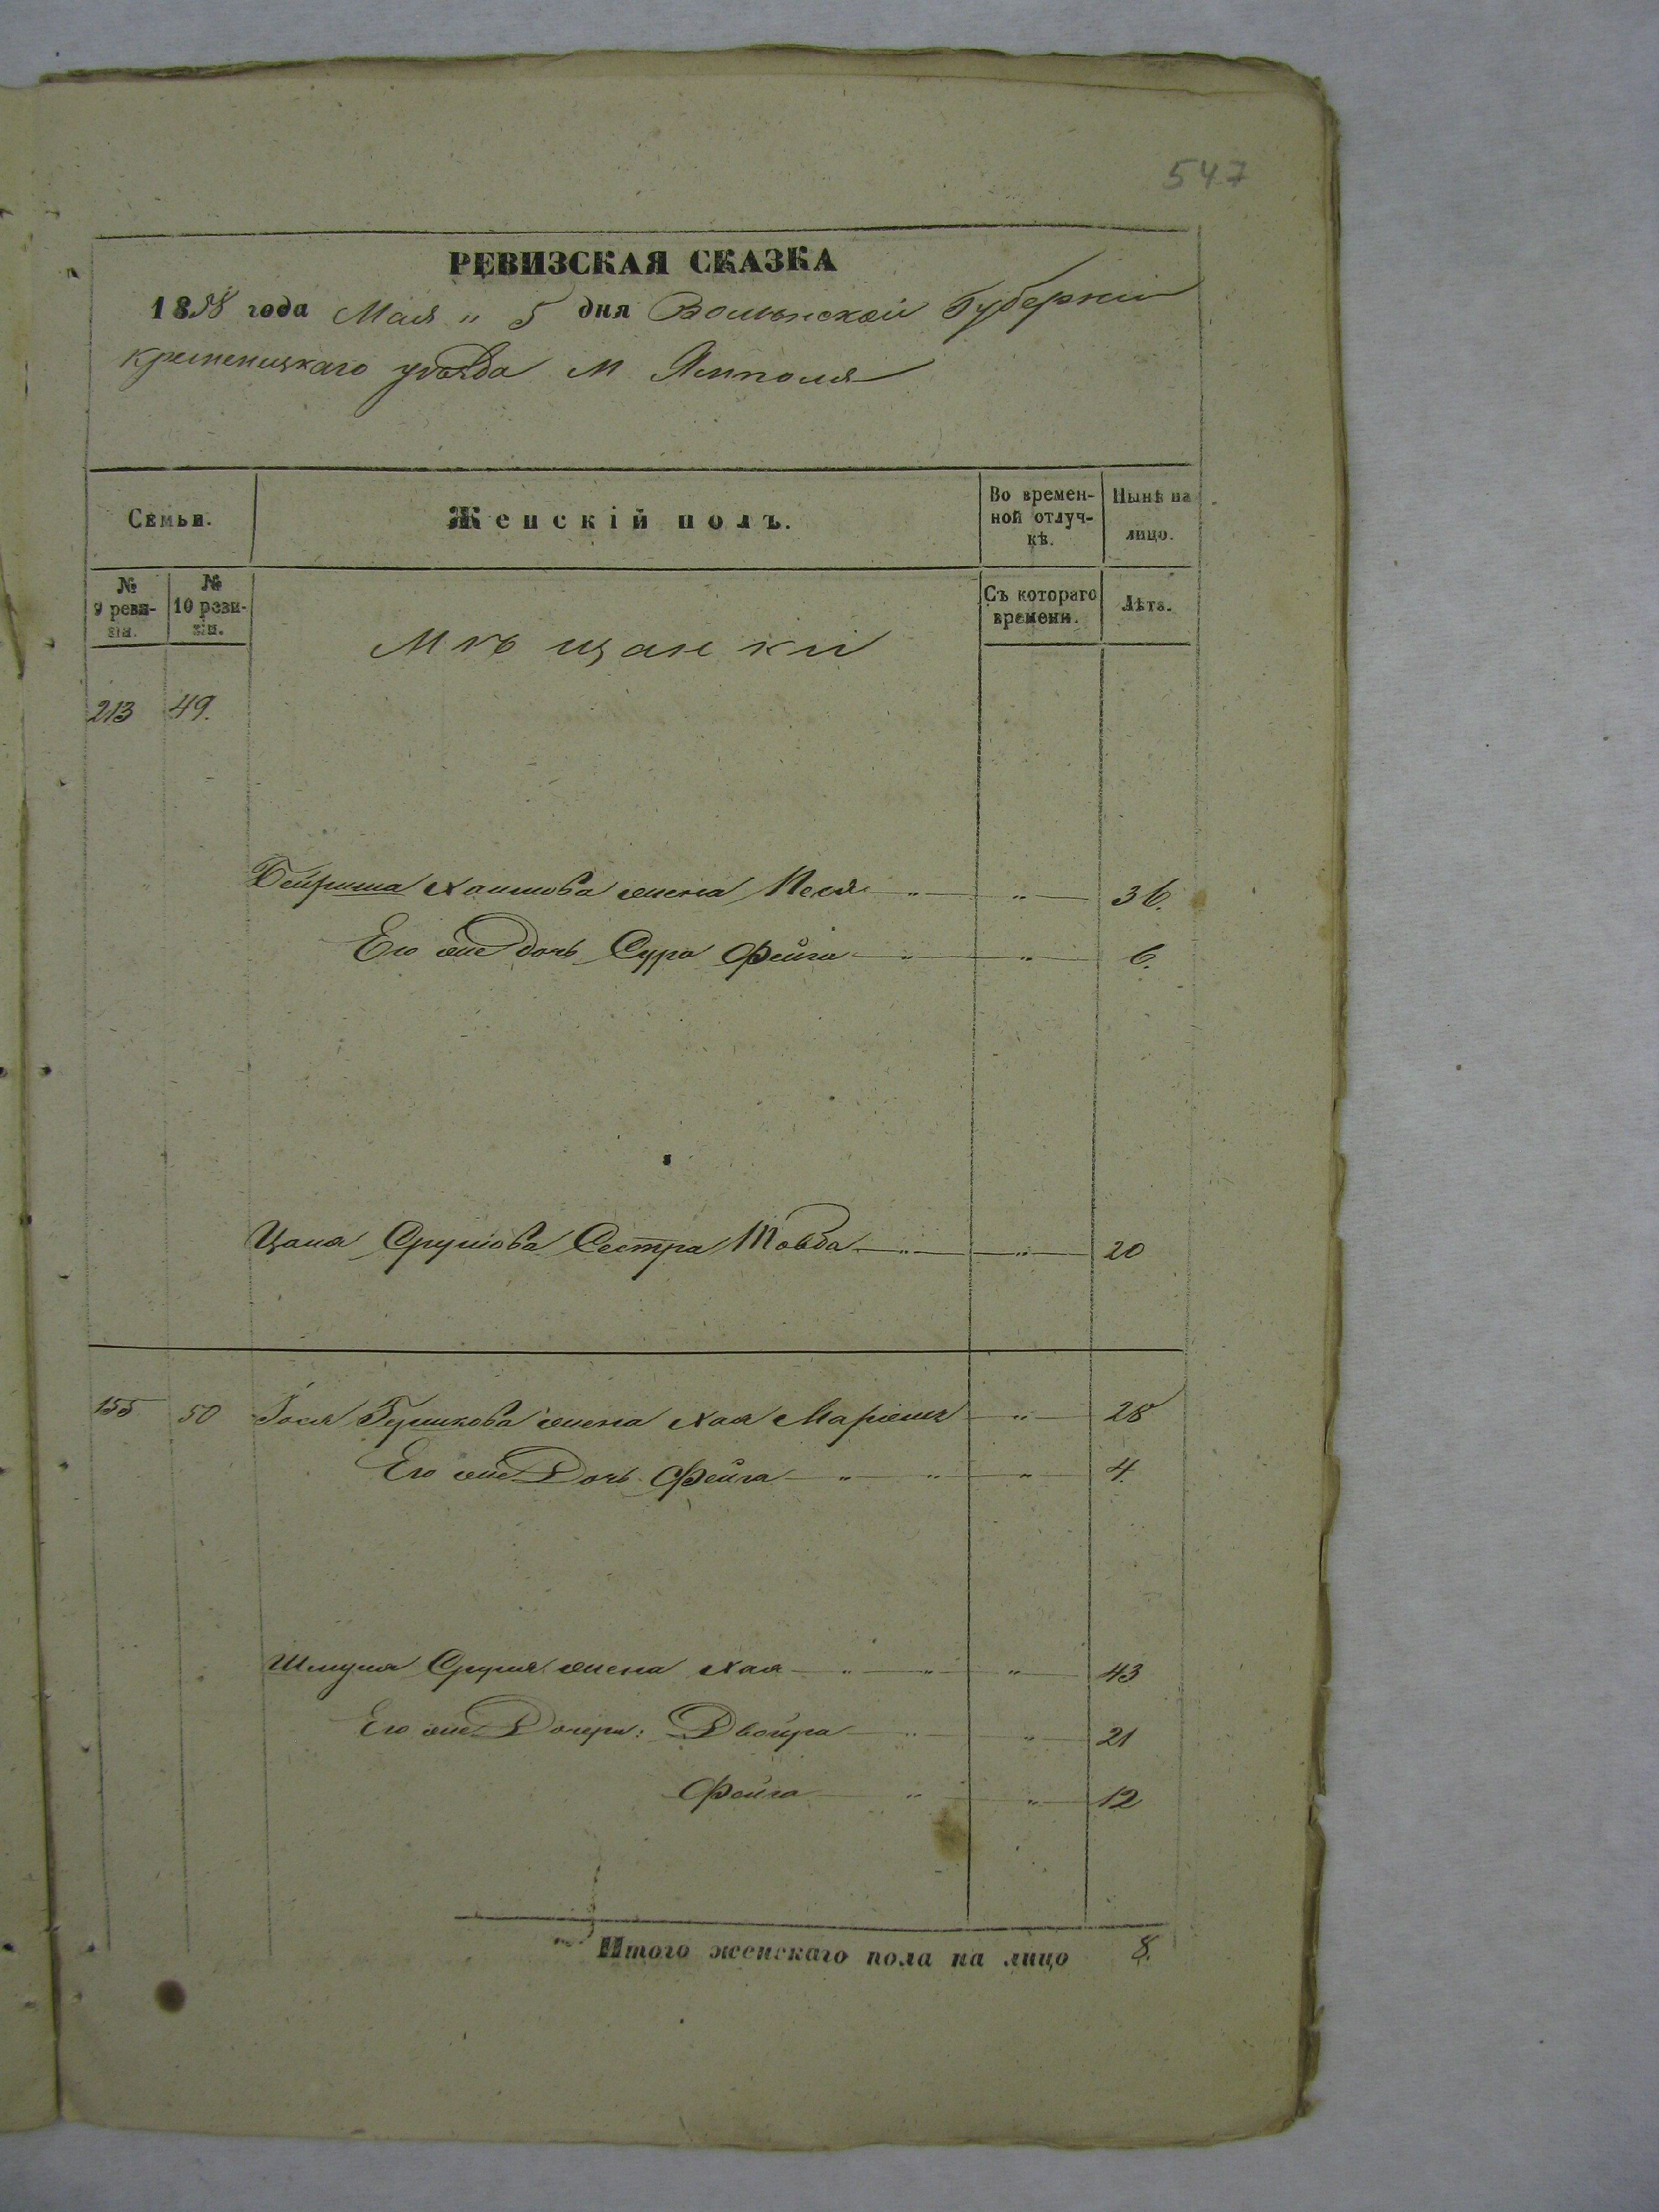 547
РЕВИЗСКАЯ СКАЗКА
1858 года Мая „ 5 дня Волынской Губерніи
Кременецкаго уѣзда М Ямполя
Семьи.
Женскій полъ.
Во времен-
ной отлуч-
кѣ.
Нынѣ на
лицо.
№
9 реви-
зіи.
№
10 реви-
зіи.
Съ котораго
времени.
Лѣта.
Мѣщанки
213 49.
Бейриша Хаимова жена Песя „ „ 36.
Его же дочь Сура Фейга „ „ 6.
Сестра Товба „ „ 20
155 50 Іося Гершкова жена Хая Маріем „ 28
Его же Дочь Фейга „ „ „ 4.
Шмуля Сруля жена Хая „ „ „ 43
Его же Дочери: Двойра „ „ 21
Фейга „ „ 12
Итого женскаго пола на лицо 8.